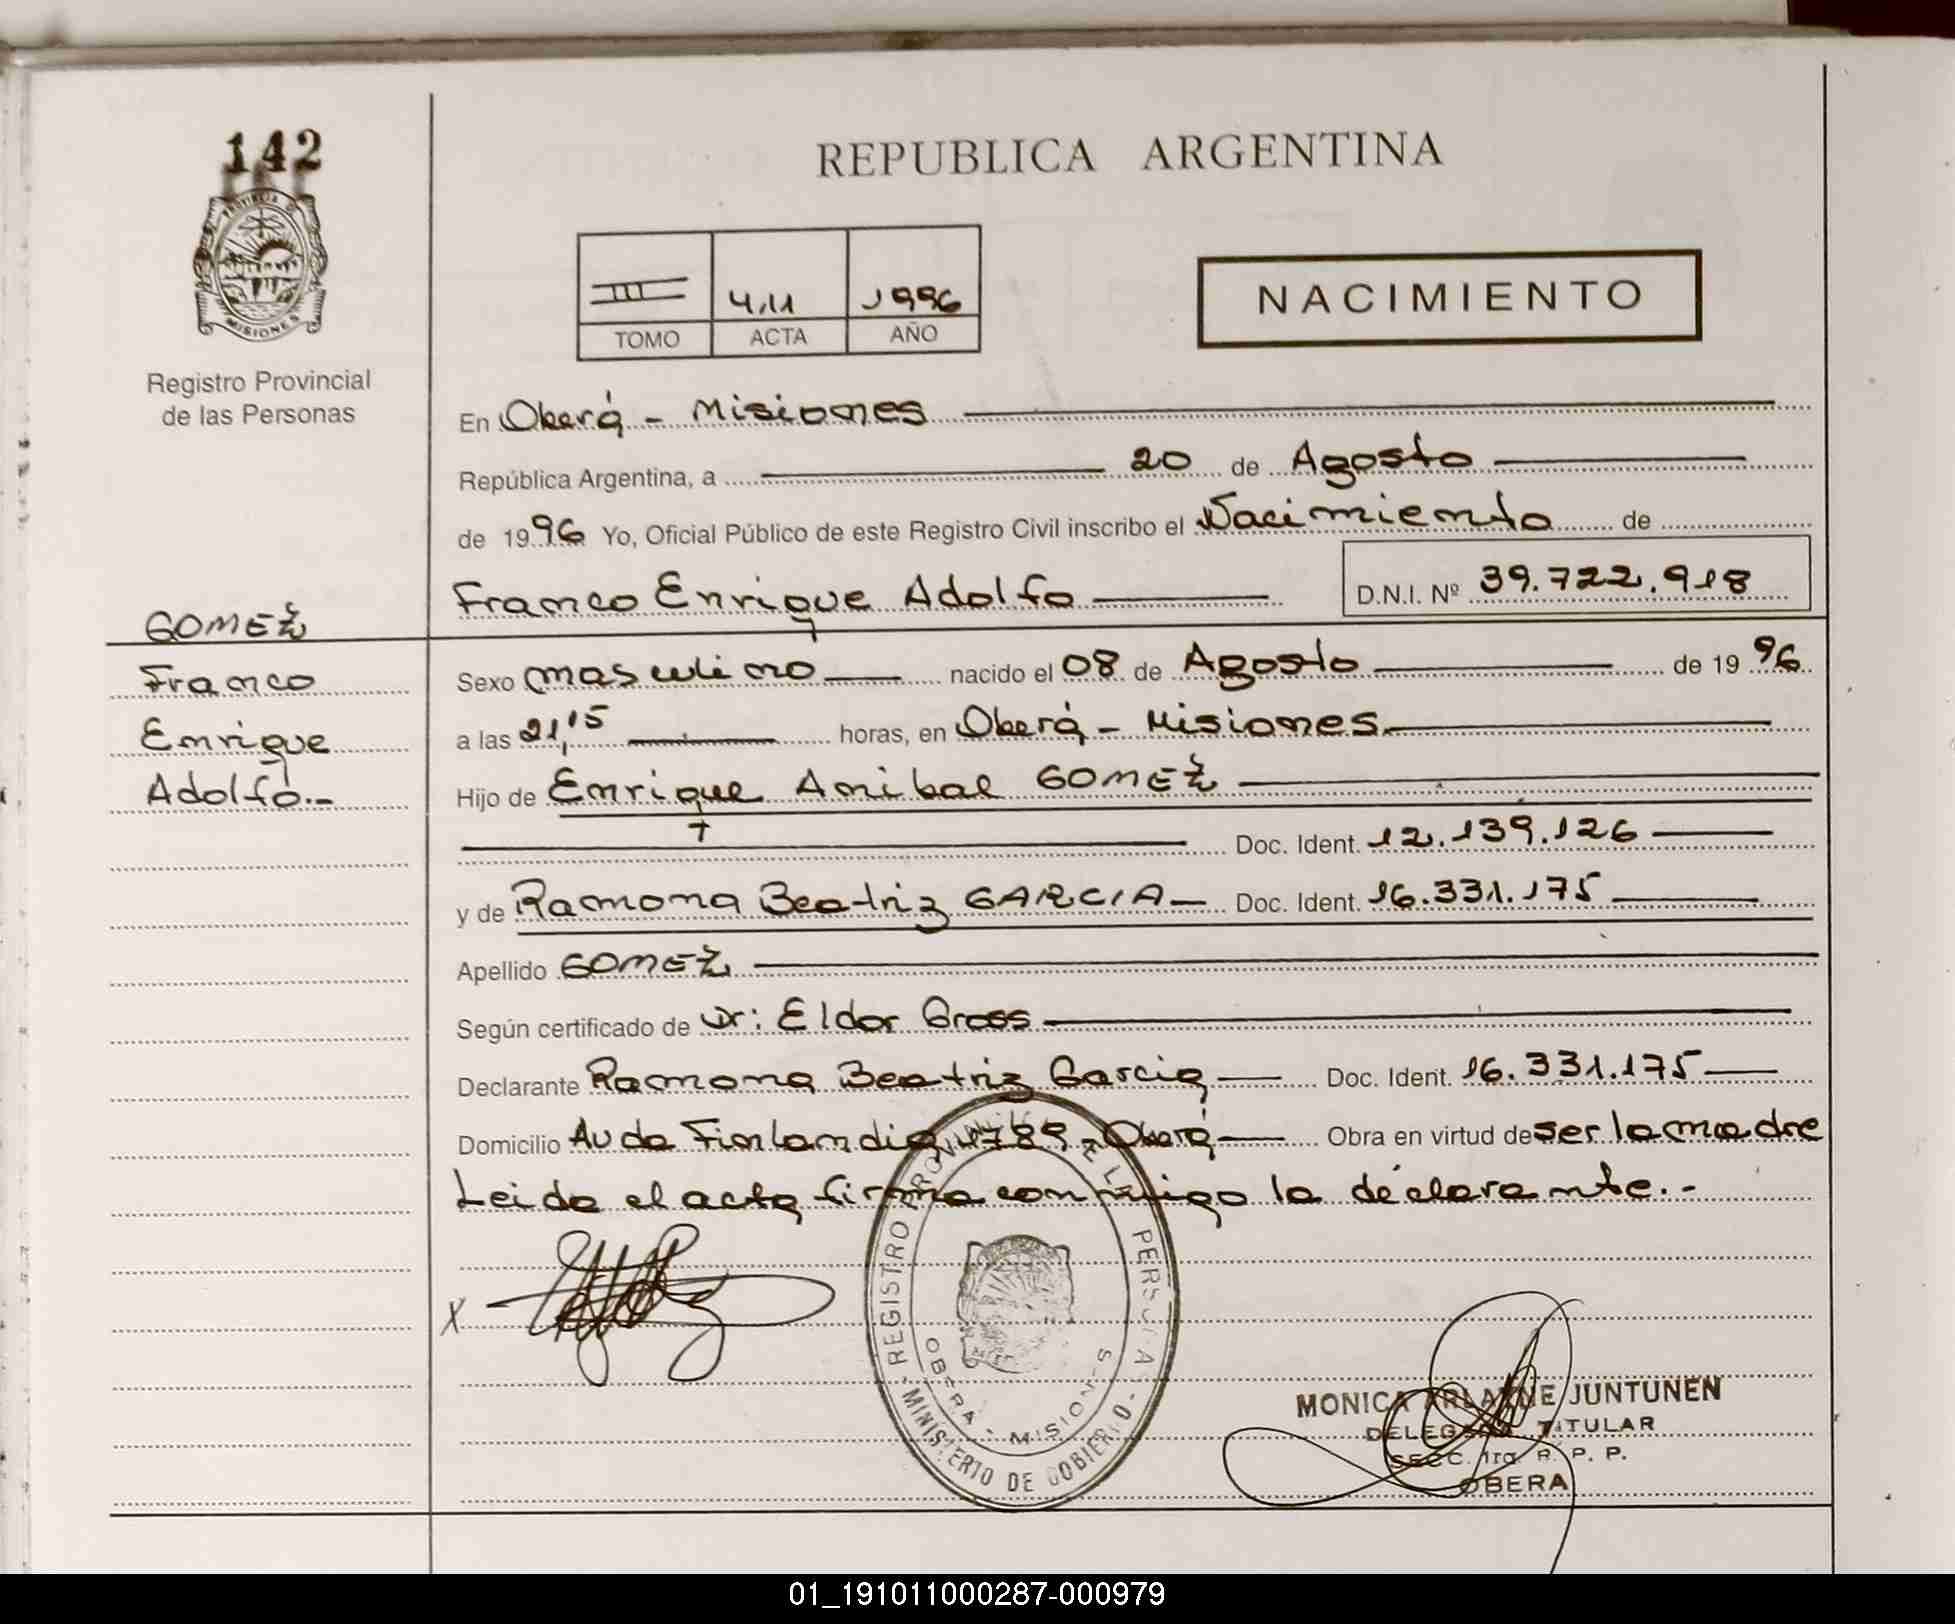 142
PROVINCIA DE
MISIONES
Registro Provincial
de las Personas
GOMEZ
Franco
Enrique
Adolfo.-
REPUBLICA ARGENTINA
III 411 1996
TOMO ACTA AÑO
NACIMIENTO
En Oberá - Misiones
República Argentina, a 20 de Agosto
de 1996 Yo, Oficial Público de este Registro Civil inscribo el Nacimiento de
Franco Enrique Adolfo D.N.I. Nº 39.722.918
Sexo masculino nacido el 08 de Agosto de 1996
a las 21,15 horas, en Oberá - Misiones.
Hijo de Enrique Anibal GOMEZ
Doc. Ident. 12.139.126
y de Ramona Beatriz GARCIA Doc. Ident. 16.331.175
Apellido GOMEZ
Según certificado de Dr: Eldor Gross
Declarante Ramona Beatriz Garcia Doc. Ident. 16.331.175
Domicilio Avda Finlandia 4789 - Oberá Obra en virtud de ser la madre
Leida el acta firma conmigo la declarante.-
X
REGISTRO PROVINCIAL DE LAS PERSONAS - MINISTERIO DE GOBIERNO -
OBERA - MISIONES
MONICA ARLAINE JUNTUNEN
DELEGADA TITULAR
SECC. 1ra. R. P. P.
OBERA
01_191011000287-000979